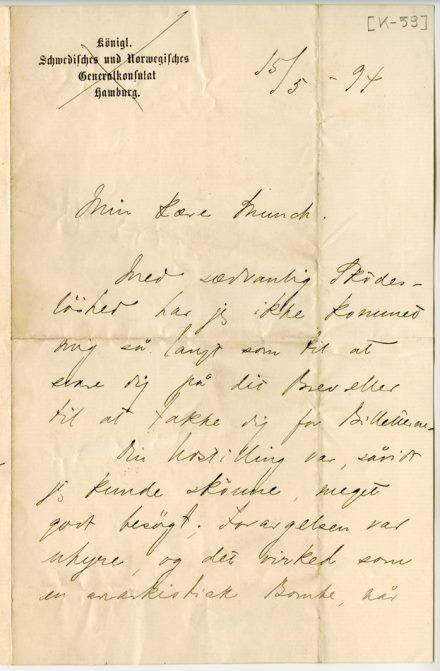 [K-59]
Königl.
Schwedisches und Norwegisches
Generalkonsulat
Hamburg.
15/5 - 94
Min kære Munch.
Med sædvanlig Skødes-
løshed har jeg ikke kommet
mig så langt som til at
svare dig på dit Brev eller
til at takke dig for Billetterne.
Din Udstilling var, såvidt
jeg kunde skönne, meget
godt besøgt; Forargelsen var
uhyre, og det virked som
en anarkistisk Bombe, når